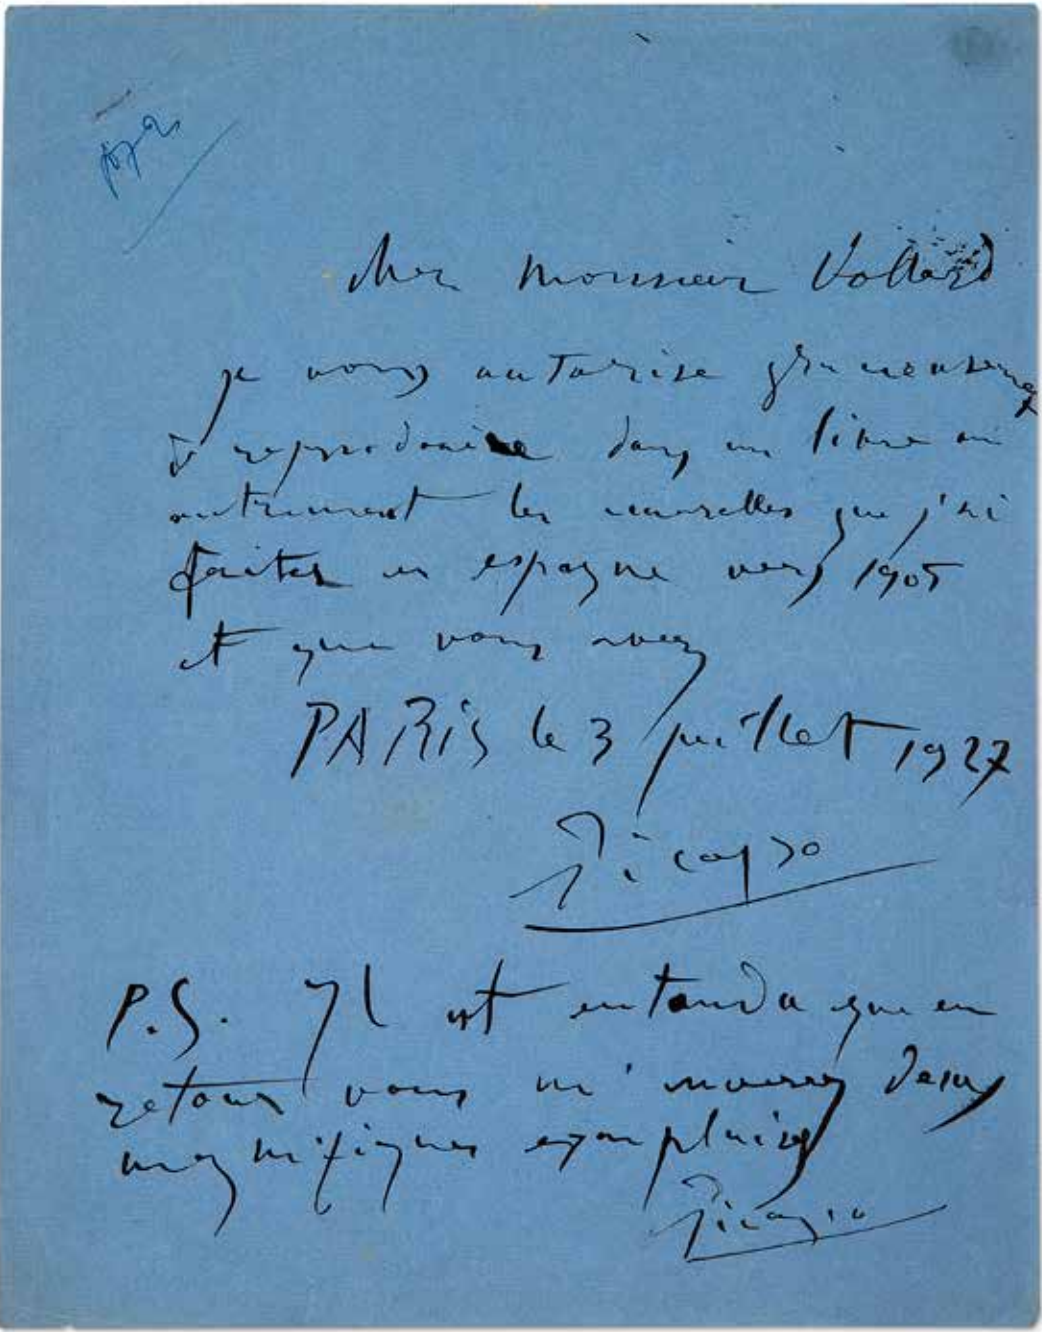 cher monsieur Vollard
je vous autorise gracieusement
de reproduire dans un livre ou
autrement les aquarelles que j'ai
faites en espagne vers 1905
et que vous avez
PARIS le 3 juillet 1927
Picasso
P.S. Il est entendu que en
retour vous m' deux
magnifiques exemplaires
Picasso